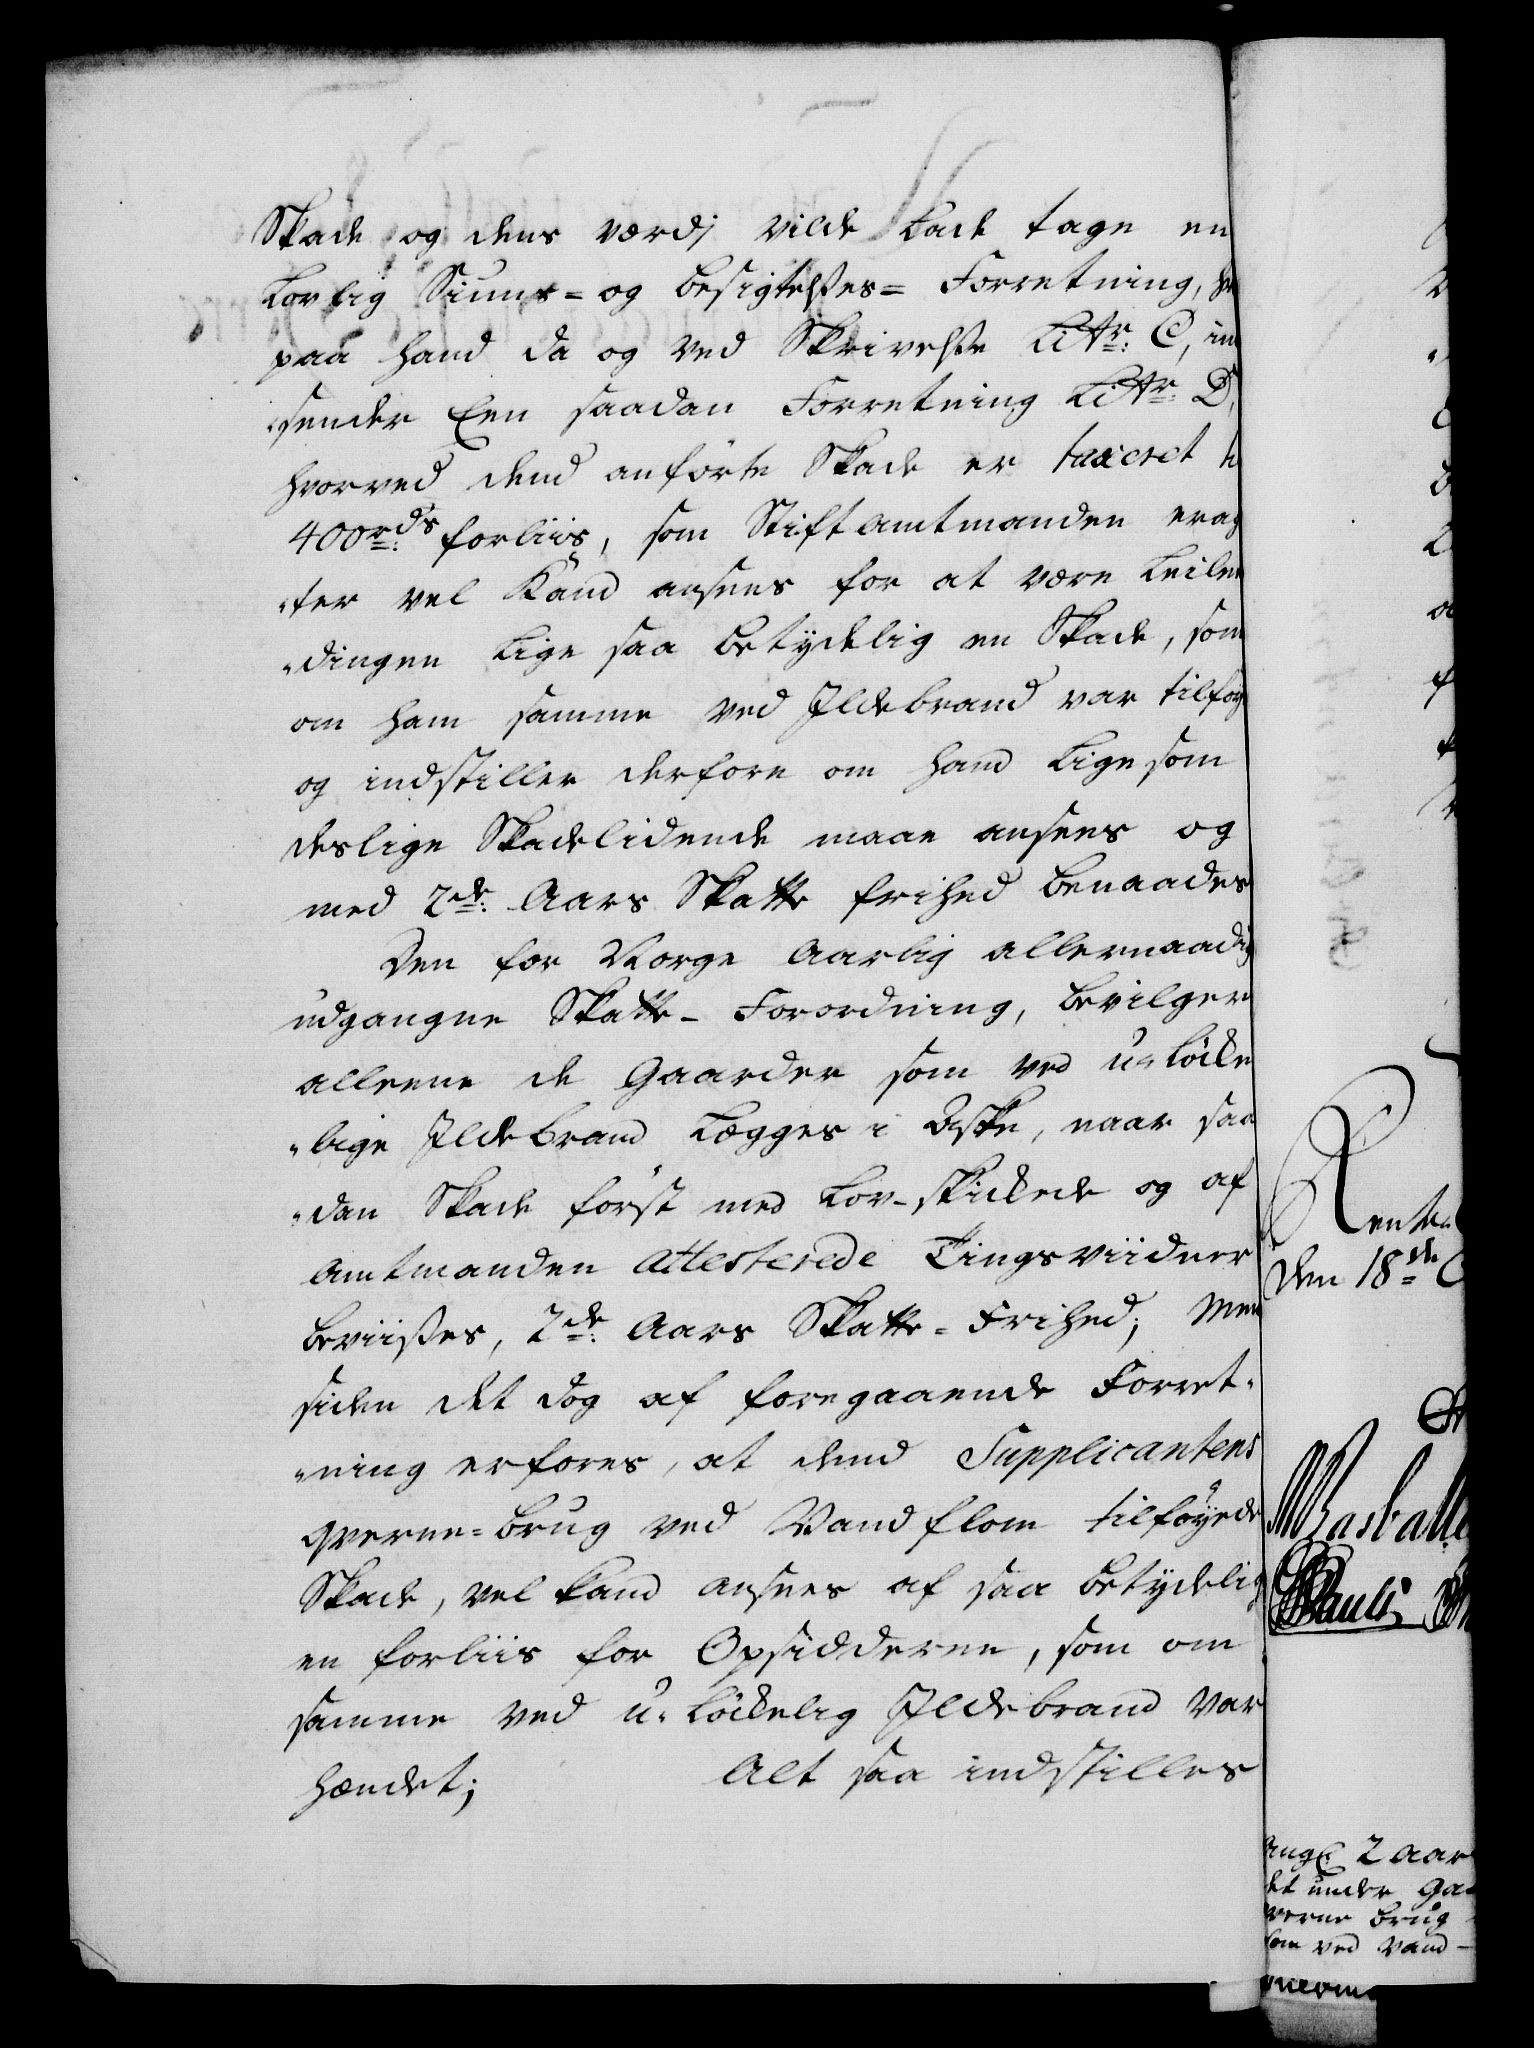 Skade og dens værdj vilde Lade tage en
Lovlig Siuns= og besigtelsses= Forretning,
paa hand da og ved Skrivelsse Littr: C, in
„sender Een saadan Forretning Littr: D,
hvorved dend anförte Skade er taxeret
400rd:s forliis, som Stiftamtmanden erag
„ter vel Kand ansees for at være Leilen
„dingen Lige saa betydelig en Skade, som
om ham samme ved Ildebrand var tilföy
og indstiller derfore om hand Ligesom
deslige Skadelidende maae ansees og
med 2de: Aars Skatte frihed benaades
Den for Norge Aarlig allernaadig
udgangne Skatte- Forordning, bevilger
alleene de Gaarder som ved u-löcke
„lige Ildebrand Lægges i Aske, naar saa
„dan Skade först med Lov-skickede og af
Amtmanden Attesterede Tingsviidner
beviisses, 2de: Aars Skatte=Frihed; Men
siden det dog af foregaaende Forret-
„ning erfores, at dend Supplicantens
qverne=brug ved Vandflom tilföyede
Skade, vel kand ansees af saa betydelig
en forliis for Opsidderne, som om
samme ved u-löckelig Ildebrand var
hændet; Alt saa indstilles
Rente
den 18de
Pauli
2 Aar
det under Ga
verne brug
som ved Vand-